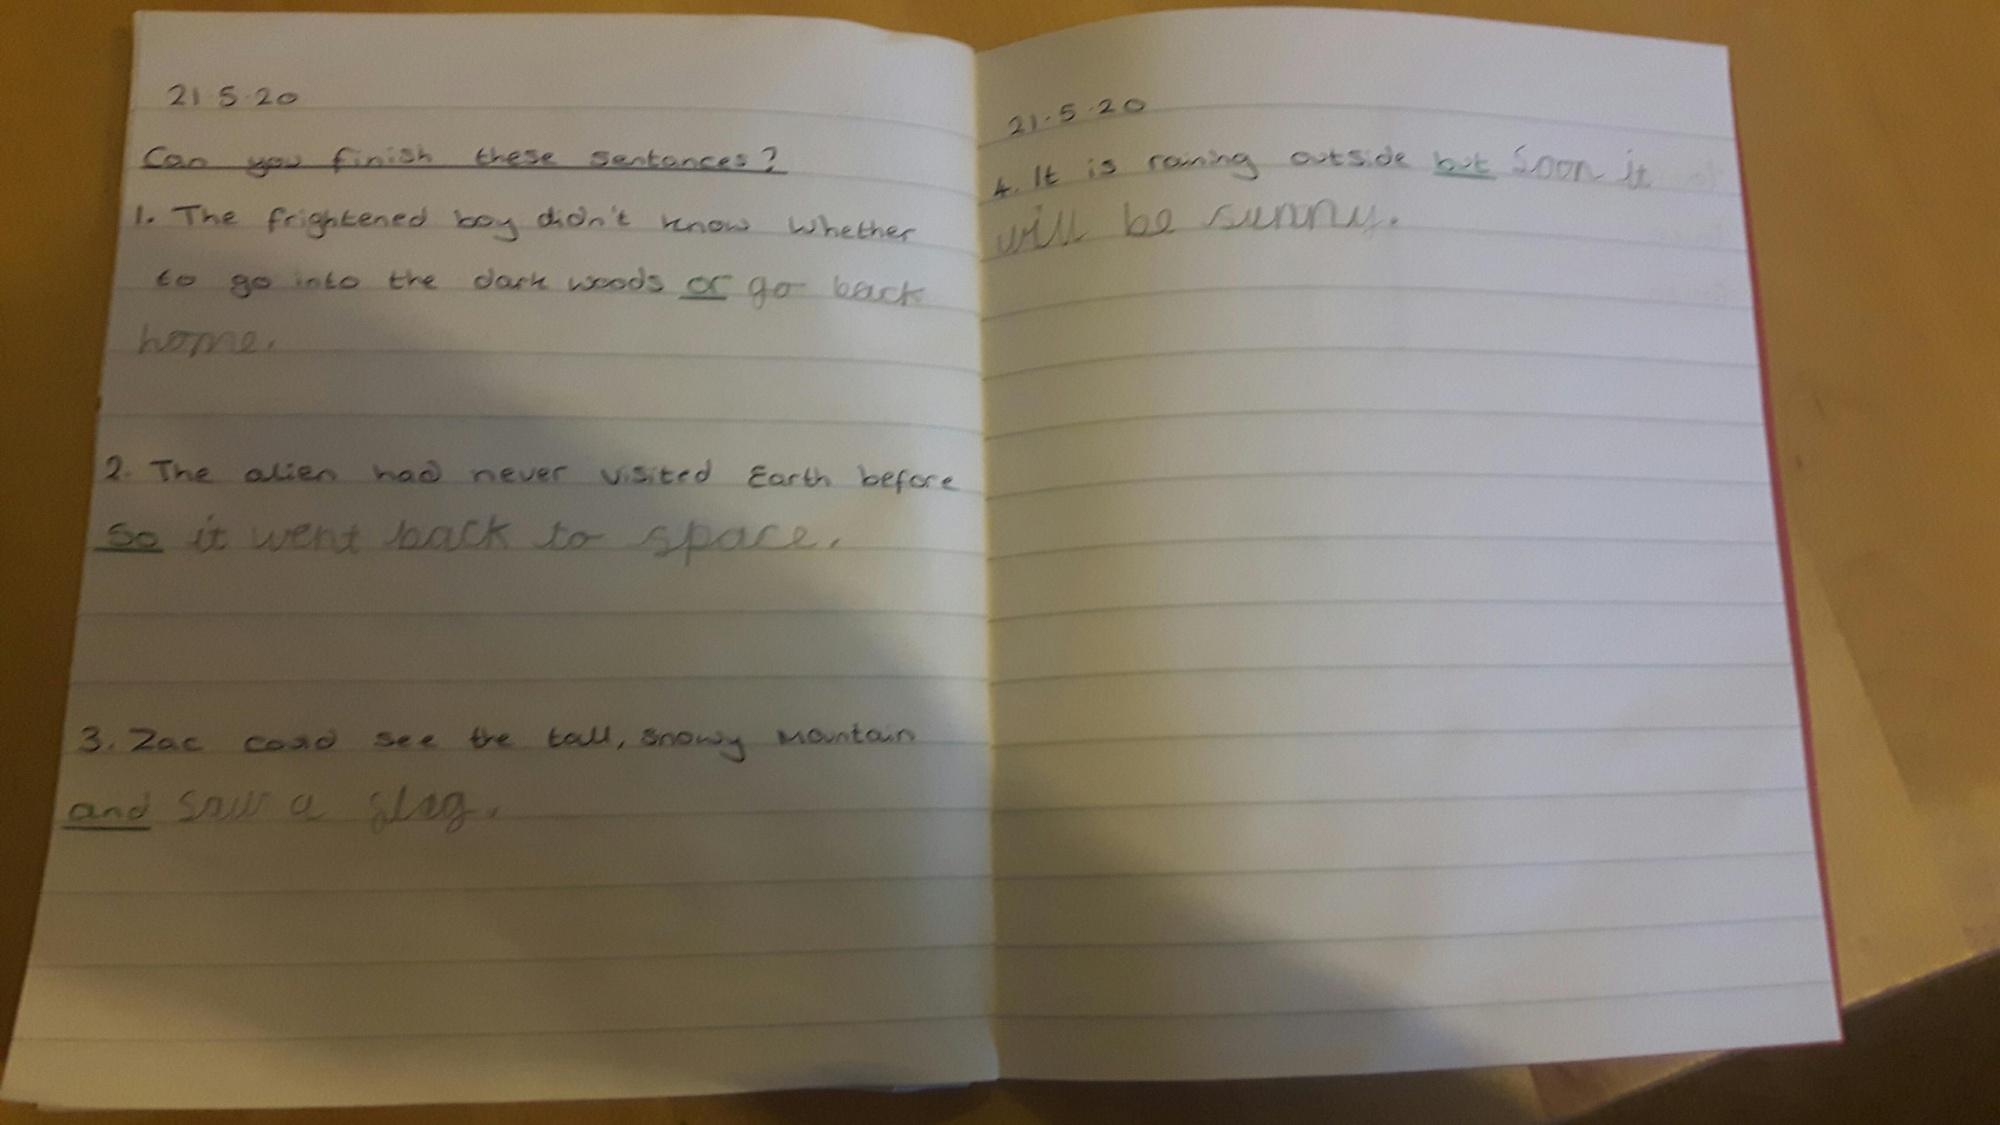 21.5.20
Can you finish these sentances?
1. The frightened boy didn't know whether
to go into the dark woods or go back
home.
2. The alien had never visited Earth before
so it went back to space.
3. Zac could see the tall, snowy mountain
and saw a
21.5.20
4. It is raining outside but soon it
will be sunny.